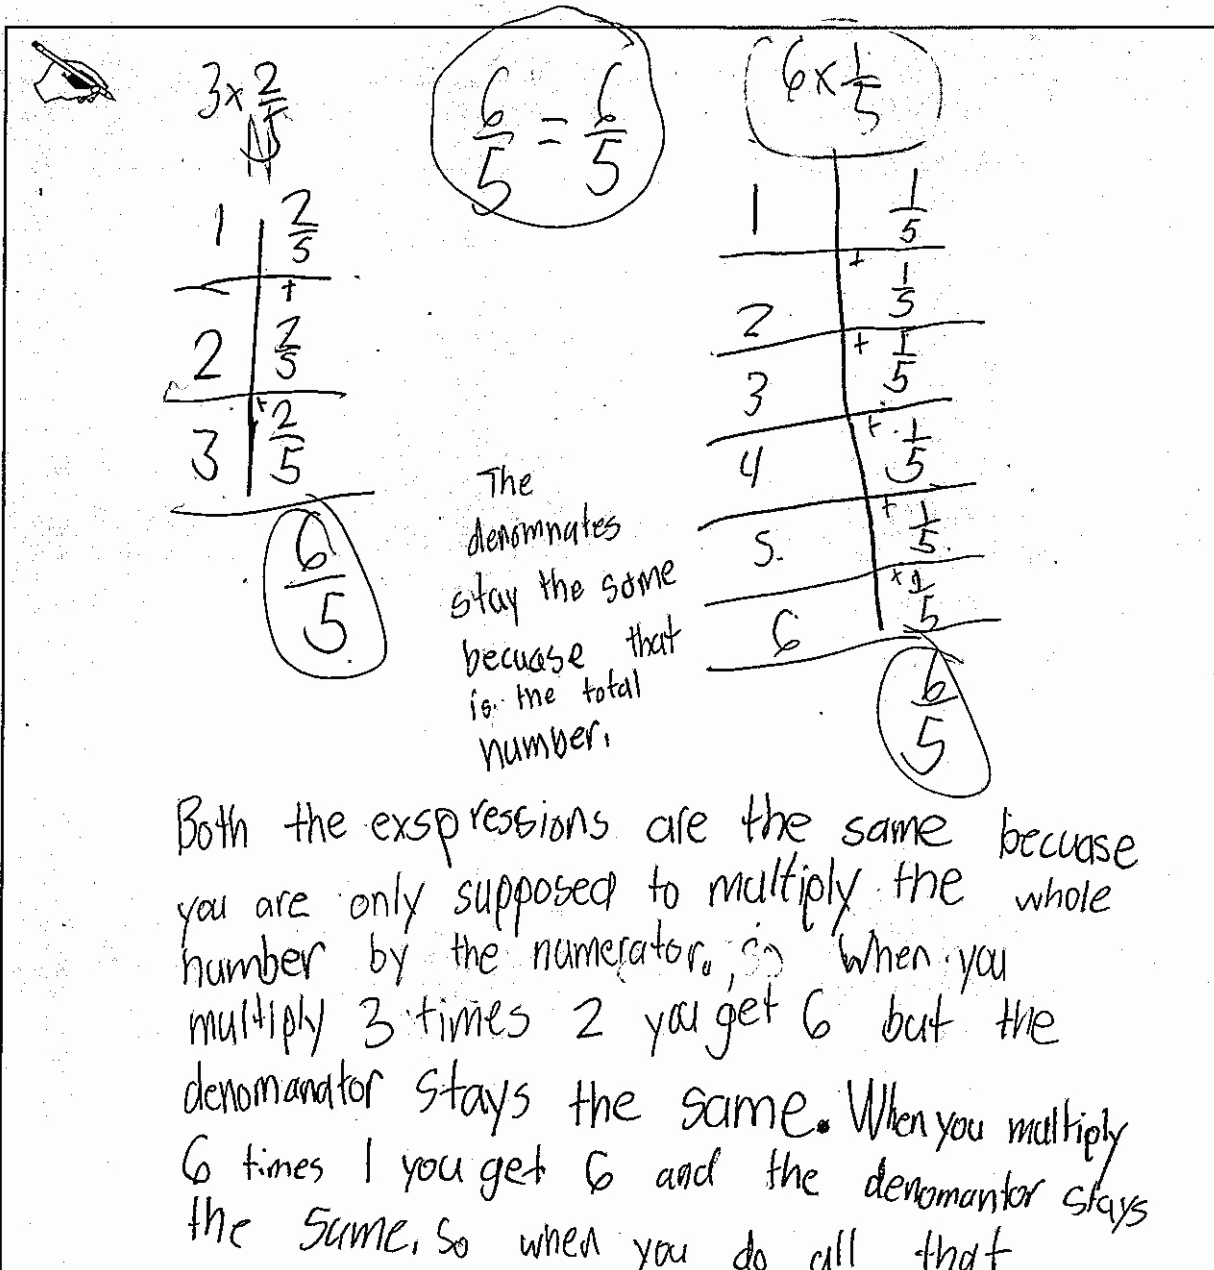 3 x 2/5
6/5 = 6/5
6 x 1/5
1 | 2/5
+
2 | 2/5
+
3 | 2/5
6/5
1 | 1/5
+
2 | 1/5
+
3 | 1/5
+
4 | 1/5
+
5. | 1/5
+
6 | 1/5
6/5
The
denomnates
stay the same
becuase that
is the total
number.
Both the exspressions are the same becuase
you are only supposed to multiply the whole
number by the numerator. When you
multiply 3 times 2 you get 6 but the
denomanator stays the same. When you multiply
6 times 1 you get 6 and the denomantor stays
the same. So when you do all that